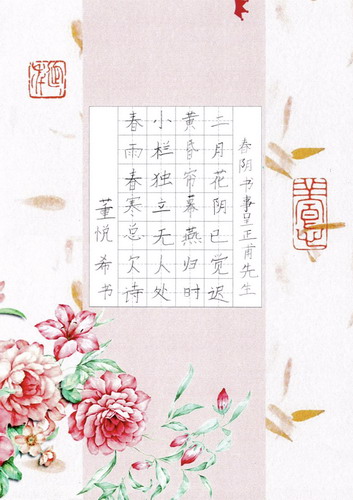 春阴书事呈正甫先生
二月花阴已觉迟
黄昏帘幕燕归时
小栏独立无人处
春雨春寒总欠诗
董悦希书